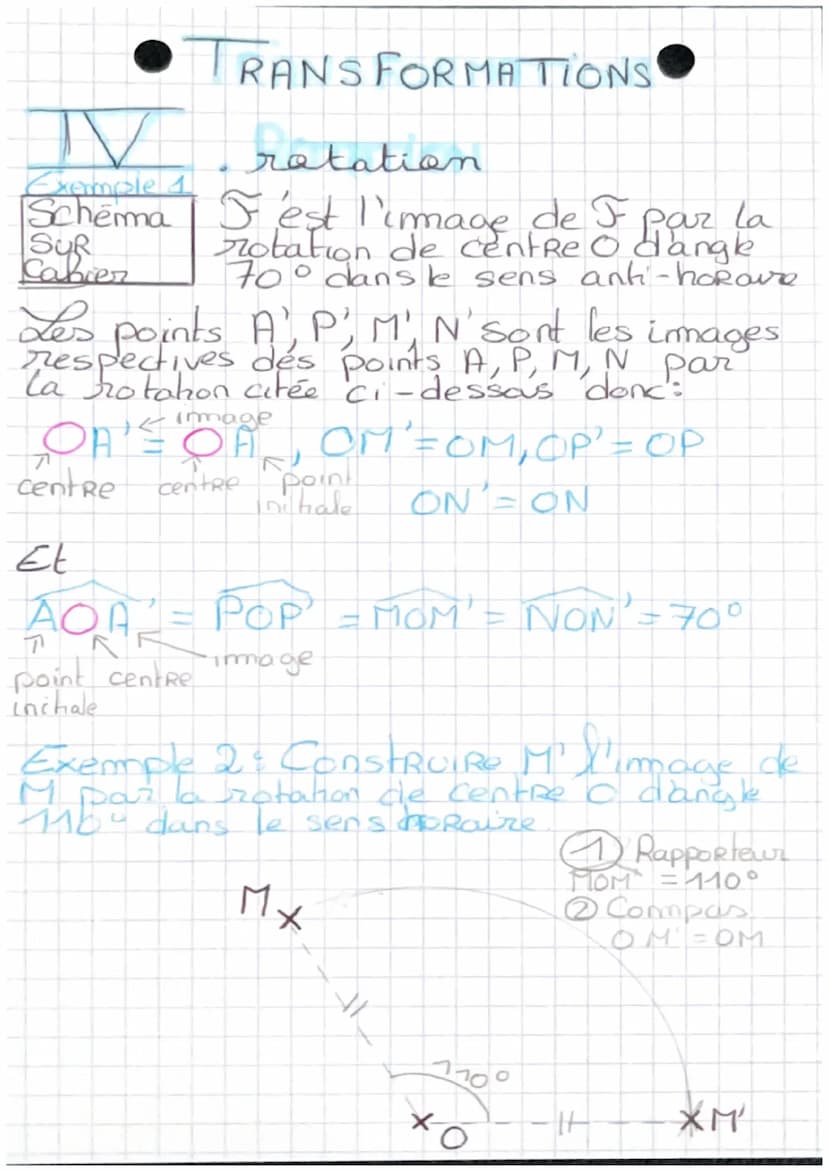 TRANSFORMATIONS
IV . rotation
Exemple 1
Schéma
SUR
Cahier
F' est l'image de F par la
rotation de centre O d'angle
70° dans le sens anti-horaire
Les points A', P', M', N' sont les images
respectives des points A, P, M, N par
la rotation citée ci-dessus donc:
← image
OA' = OA, OM' = OM, OP' = OP
centre centre point
initiale ON' = ON
Et
AOA' = POP' = MOM' = NON' = 70°
image
point centre
initiale
Exemple 2: Construire M' l'image de
M par la rotation de centre O d'angle
110° dans le sens horaire
① Rapporteur
MOM' = 110°
② Compas
OM' = OM
M
110°
O
M'